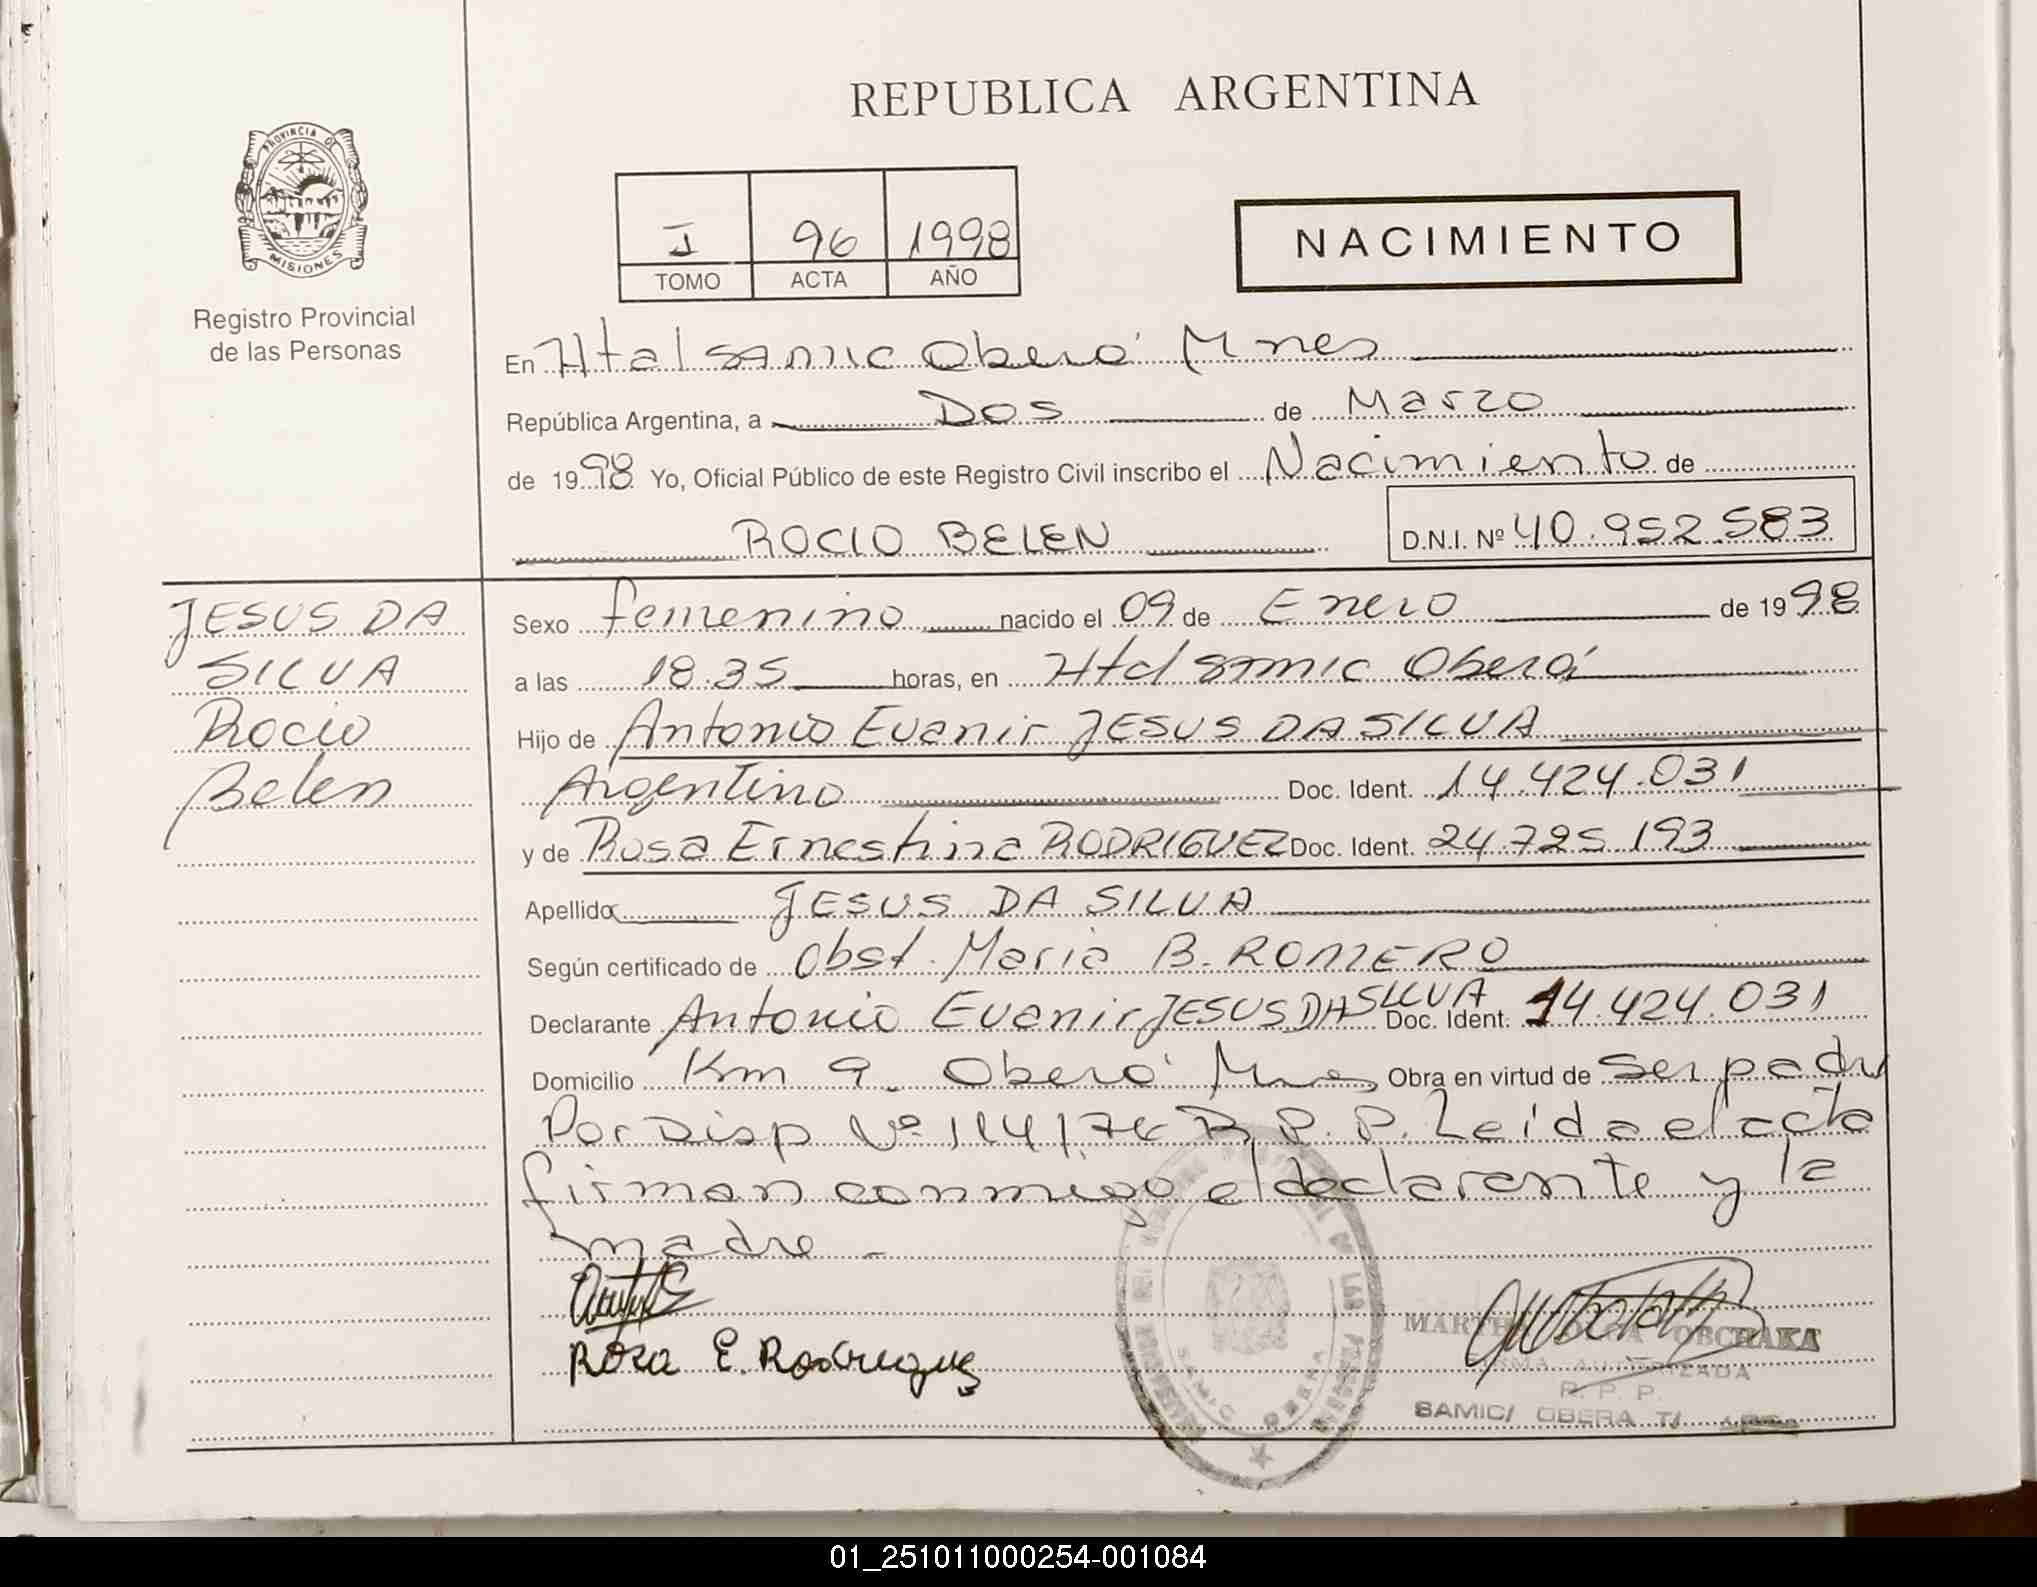 REPUBLICA ARGENTINA
PROVINCIA DE
MISIONES
Registro Provincial
de las Personas
I 96 1998
TOMO ACTA AÑO
NACIMIENTO
En Htal SAMIC Oberá Mnes
República Argentina, a Dos de Marzo
de 1998 Yo, Oficial Público de este Registro Civil inscribo el Nacimiento de
ROCIO BELEN D.N.I. Nº 40.952.583
JESUS DA
SILVA
Rocio
Belen
Sexo femenino nacido el 09 de Enero de 1998
a las 18.35 horas, en Htal SAMIC Oberá
Hijo de Antonio Evanir JESUS DA SILVA
Argentino Doc. Ident. 14.424.031
y de Rosa Ernestina RODRIGUEZ Doc. Ident. 24.725.193
Apellido JESUS DA SILVA
Según certificado de Obst. Maria B. ROMERO
Declarante Antonio Evanir JESUS DA SILVA Doc. Ident. 14.424.031
Domicilio Km 9. Oberá Mnes Obra en virtud de ser padre
Por Disp Nº 114/76 R.P.P. Leida el acta
firman conmigo el declarante y la
madre
Rosa E. Rodriguez
MARTHA OLGA OBCHAKA
FIRMA AUTORIZADA
R. P. P.
SAMIC/ OBERA
01_251011000254-001084